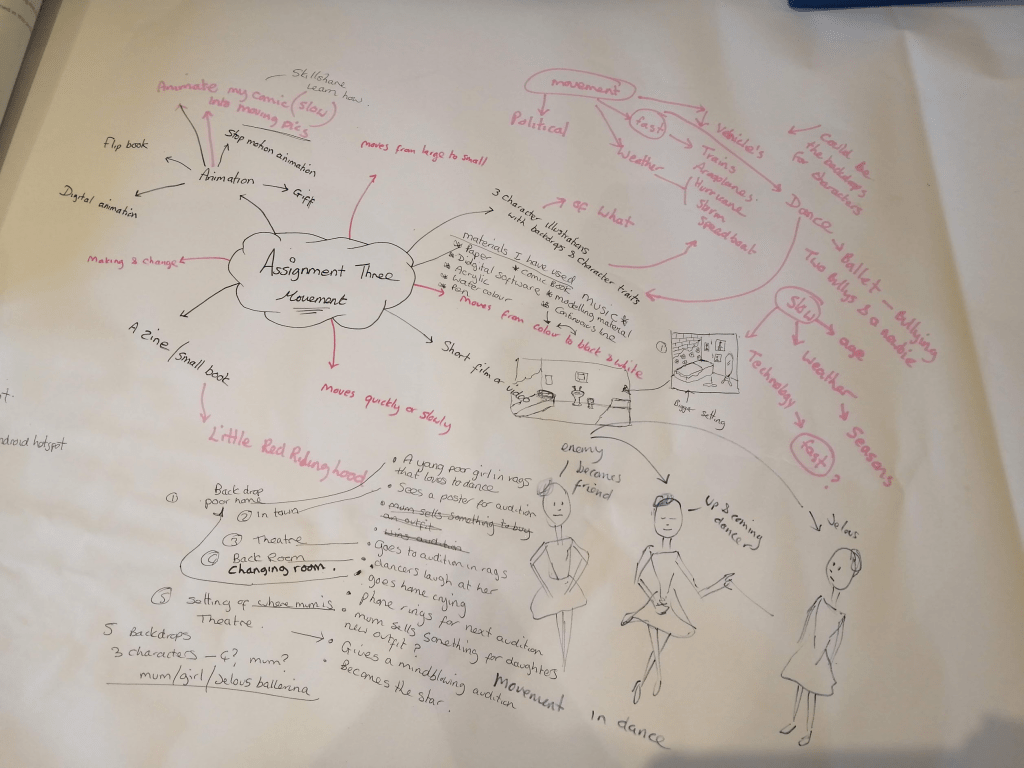 Skillshare
Learn how.
Animate my comic (slow)
into moving pics
flip book
Stop motion animation
Animation
Giff
Digital animation
Making & change
Assignment Three
Movement
moves from large to small
A zine/small book
Little Red Riding hood
Moves quickly or slowly
Short film or video
Moves from colour to black & white
3 character illustrations
with backdrops & character traits
materials I have used
* Paper
* Comic Book
MUSIC *
* Digital Software
* modelling material
* Acrylic
* Continuous line
* Water colour
* Pen
of what
movement
Political
fast
Weather
Vehicle's
Trains
Airaplanes.
Hurricane
Storm
Speedboat
Could be
the backdrops
for characters
Dance
Ballet - Bullying
Two bullys & a newbie
Slow
age
Weather
Seasons
Technology
fast
?
①
Bigger setting
ndroid hotspot
① Back drop
poor home
② In town
③ Theatre
④ Back Room
Changing room.
⑤ Setting of where mum is
Theatre.
5 Backdrops
3 characters - 4? mum?
mum/girl/Jelous ballerina
• A young poor girl in rags
that loves to dance
• Sees a poster for audition
• mum sells something to buy
an outfit
• wins audition
• goes to audition in rags
• dancers laugh at her
• goes home crying
• phone rings for next audition
• mum sells something for daughters
new outfit?
• Gives a mindblowing audition
• Becomes the star.
enemy
becomes
friend
Up & coming
dancer
Jelous
Movement in dance